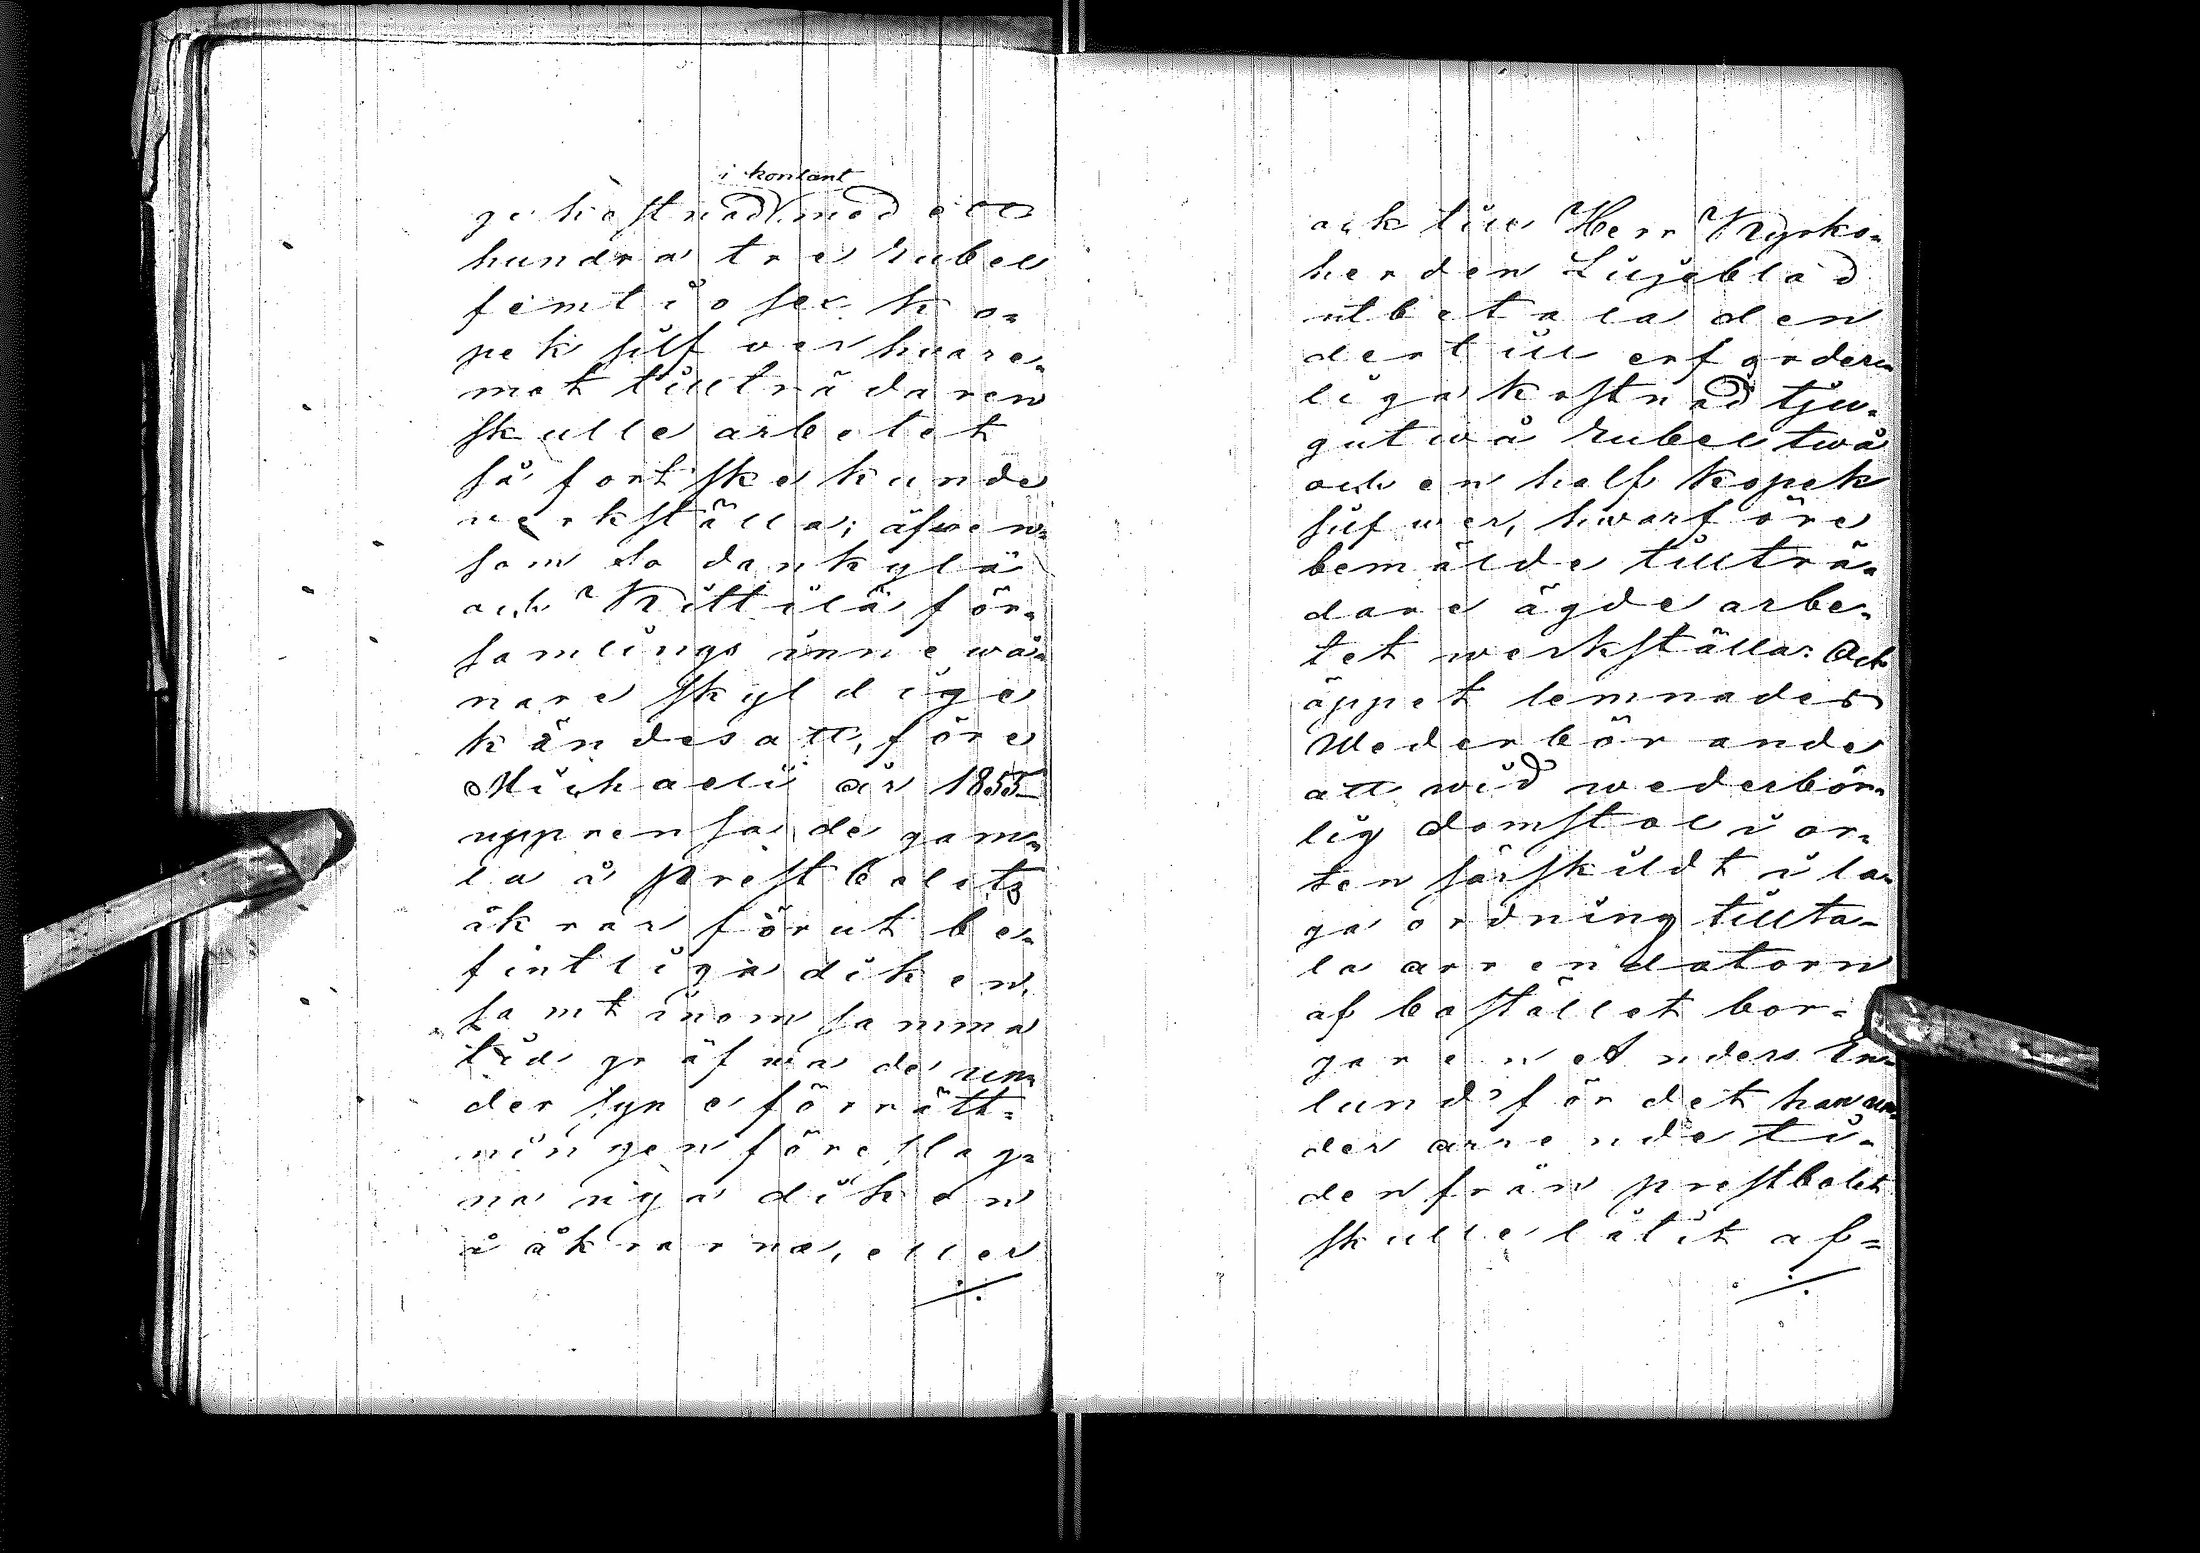 i kontant
ge kostnad med ett
hundra tre rubel
femtiosex ko-
pek silfver hvare-
mot tillträdaren
skulle arbetet
så fort ske kunde
verkställa; äfven-
som Sodankylä
och Kittilä för-
samlings innewå-
nare skyldige
kändes att, före
Michaeli år 1855
upprensa de gam-
la å prestbolets
åkrar förut be-
fintliga diken,
samt inom samma
tid gräfwa de un-
der syneförrätt-
ningen föreslag-
na nya diken
i åkrarna, eller
./.
ock till Herr Kyrko-
herden Liljeblad
utbetala den
dertill erforder-
liga kostnad tju-
gutwå rubel twå
och en half kopek
silfwer, hwarföre
bemälde tillträ-
dare ägde arbe-
tet werkställa: Och
öppet lemnades
Wederbörande
att wid wederbör-
lig domstol i or-
ten särskildt i la-
ga ordning tillta-
la arrendatorn
af bostället bor-
garen Anders En-
lund för det han un-
der arrende ti-
den från prestbolet
skulle låtit af-
./.